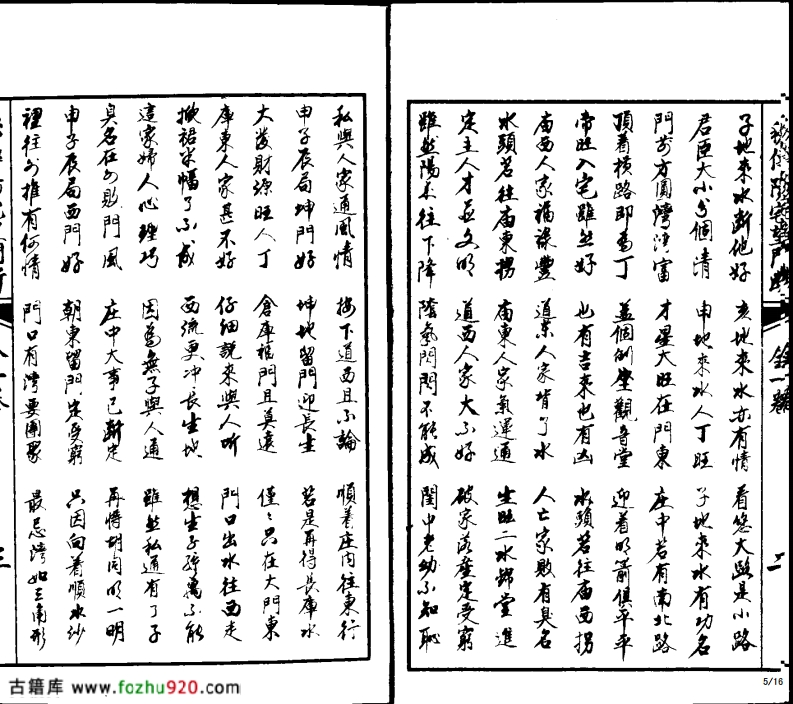 子地来水断他好 亥地来水亦有情 看您大路是小路
君臣大小分個清 申地来水人丁旺 子地来水有功名
門前方圓灣淨富 才星大旺在門東 庄中若有南北路
頂着横路即為丁 蓋個倒坐觀音堂 迎着明前俱平平
帝旺入宅雖然好 也有吉来也有凶 水頭若往庙西拐
庙西人家福祿豐 道東人家背了水 人亡家敗有臭名
水頭若往庙東拐 庙東人家氣運通 生旺二水歸堂進
定主人才并文明 道西人家大不好 破家落産定受窮
雖然陽氣往下降 陰氣閉門不能成 閨中老幼不知恥
私與人家通風情 接下道西且不論 順着庄内往東行
申子辰局坤門好 坤地留門迎長生 若是再得長庫水
大發財源旺人丁 倉庫禄門且莫遠 僅々只在大門東
庫東人家甚不好 仔細說来與人听 門口出水往西走
掀裙子幅了不成 西流更冲長生地 想生子孫萬不能
這家婦人心理巧 因為無子與人通 雖然私通有了子
臭名在外敗門風 庄中大事已断定 再将胡同明一明
申子辰局西門好 朝東留門定受窮 只因向着順水
裡往外推有何情 門口有灣要團聚 最忌灣如三角形
二
三
古籍库 www.fozhu920.com
5/16